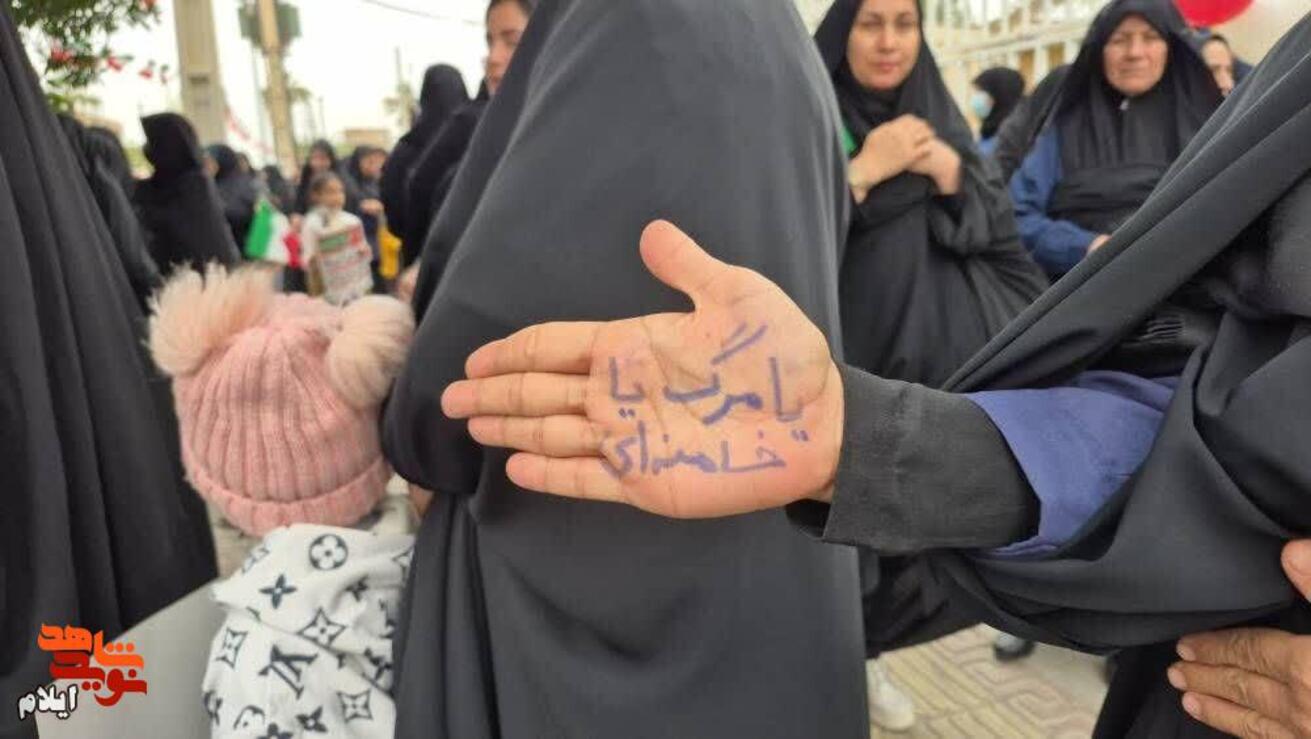 یا مرگ یا
خامنه‌ای
نوید شاهد
ایلام